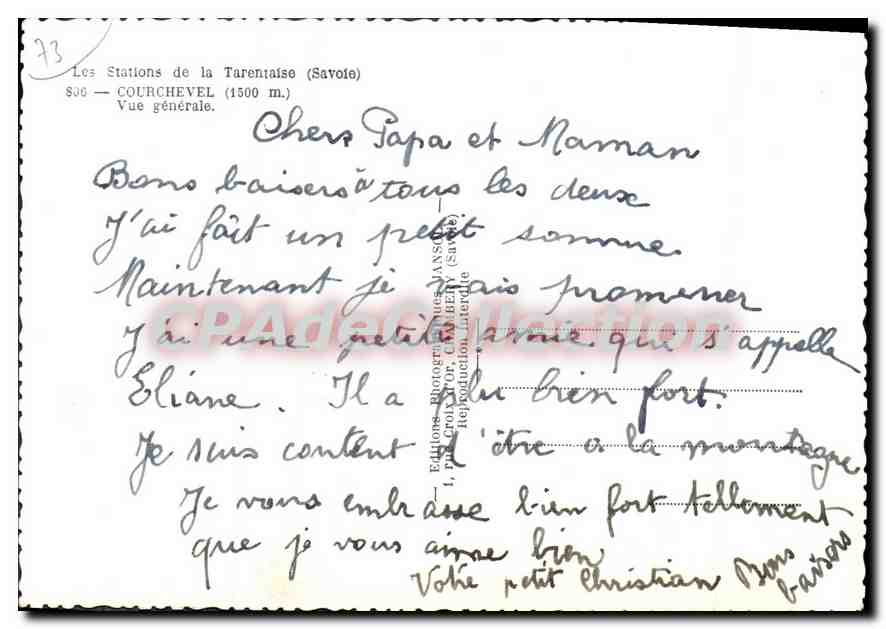 73
Les Stations de la Tarentaise (Savoie)
896 — COURCHEVEL (1500 m.)
Vue générale.
Chers Papa et Maman
Bons baisers à tous les deux
J'ai fait un petit somme
Maintenant je vais promener
J'ai une petite amie que s'appelle
Eliane. Il a plu bien fort.
Je suis content d'être a la montagne
Je vous embrasse bien fort tellement
que je vous aime bien
Votre petit Christian
Bons
baisers
— Editions Photographiques
1, rue Croix-d'Or, CHAMBÉRY (Savoie)
Reproduction interdite
CPAdeCollection